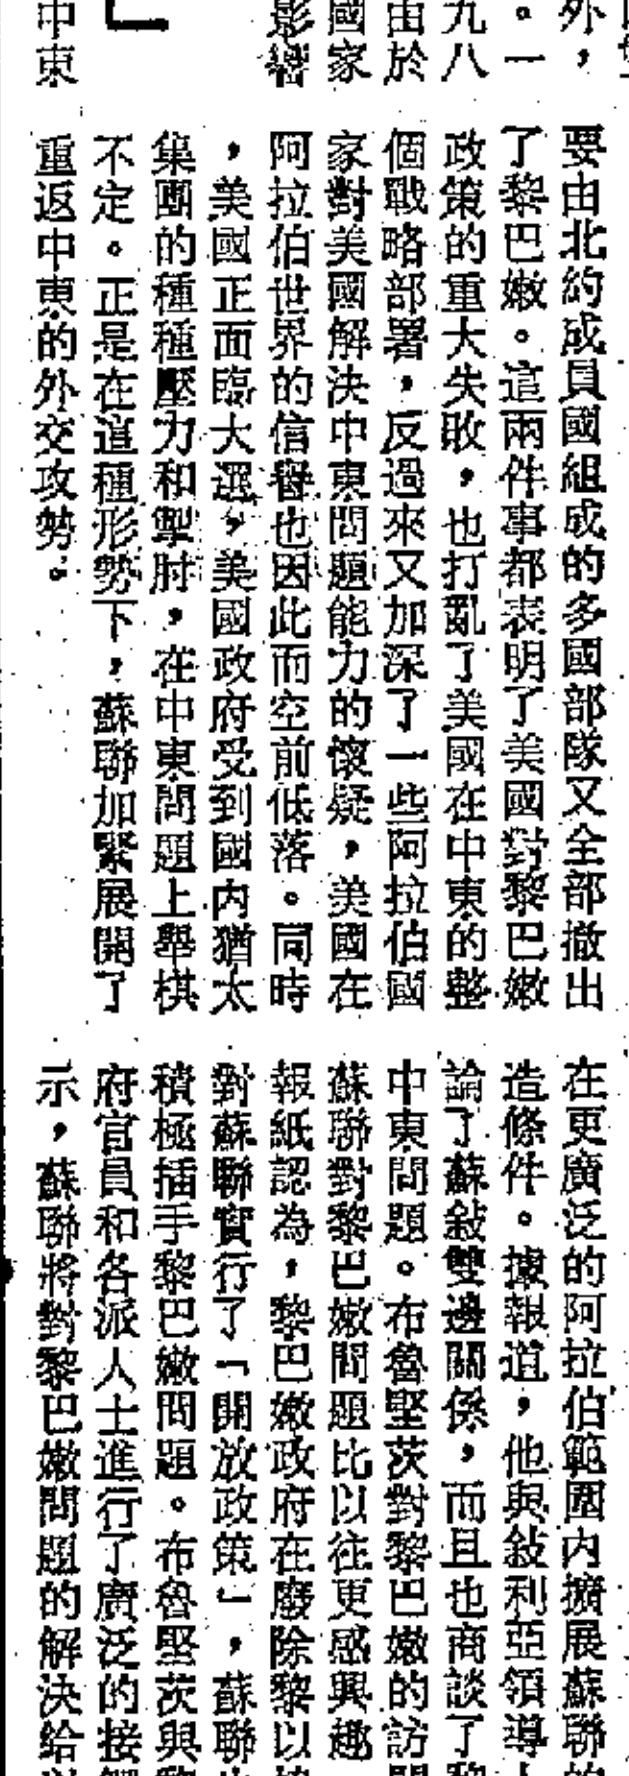 外，
。一
九八
由於
國家
影響
中東
要由北約成員國組成的多國部隊又全部撤出
了黎巴嫩。這兩件事都表明了美國對黎巴嫩
政策的重大失敗，也打亂了美國在中東的整
個戰略部署，反過來又加深了一些阿拉伯國
家對美國解決中東問題能力的懷疑，美國在
阿拉伯世界的信譽也因此而空前低落。同時
，美國正面臨大選，美國政府受到國內猶太
集團的種種壓力和掣肘，在中東問題上舉棋
不定。正是在這種形勢下，蘇聯加緊展開了
重返中東的外交攻勢。
在更廣泛的阿拉伯範圍內擴展蘇聯
造條件。據報道，他與敍利亞領導
論了蘇敍雙邊關係，而且也商談了
中東問題。布魯堅茨對黎巴嫩的訪
蘇聯對黎巴嫩問題比以往更感興趣
報紙認為，黎巴嫩政府在廢除黎以
對蘇聯實行了「開放政策」，蘇聯
積極插手黎巴嫩問題。布魯堅茨與
府官員和各派人士進行了廣泛的接
示，蘇聯將對黎巴嫩問題的解決给